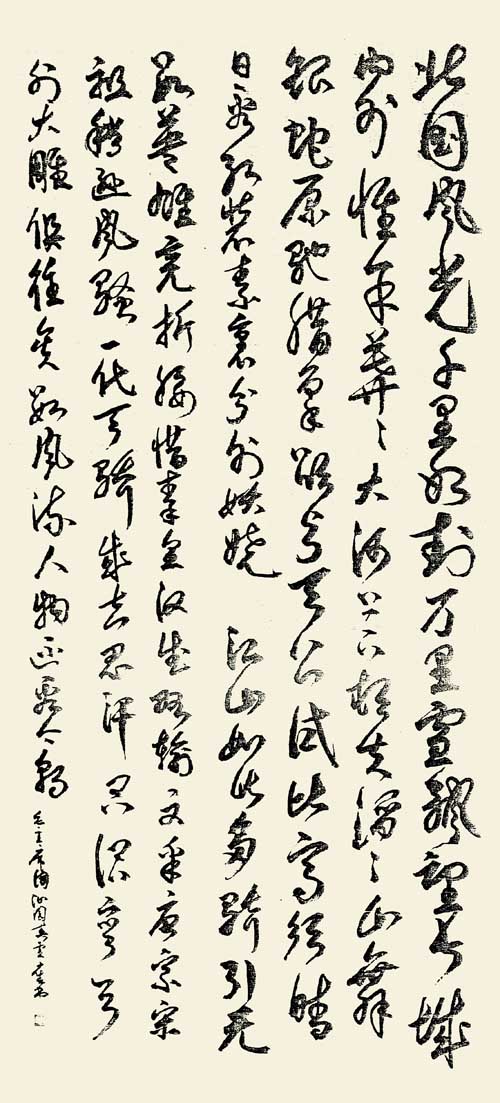 北国风光千里冰封万里雪飘望长城
内外惟余莽々大河上下顿失滔々山舞
银蛇原驰腊象欲与天公试比高须晴
日看红装素裹分外妖娆 江山如此多骄引无
数英雄竞折腰惜秦皇汉武略输文采唐宗宋
祖稍逊风骚一代天骄成吉思汗只识弯弓
射大雕俱往矣数风流人物还看今朝
毛主席词沁园春雪